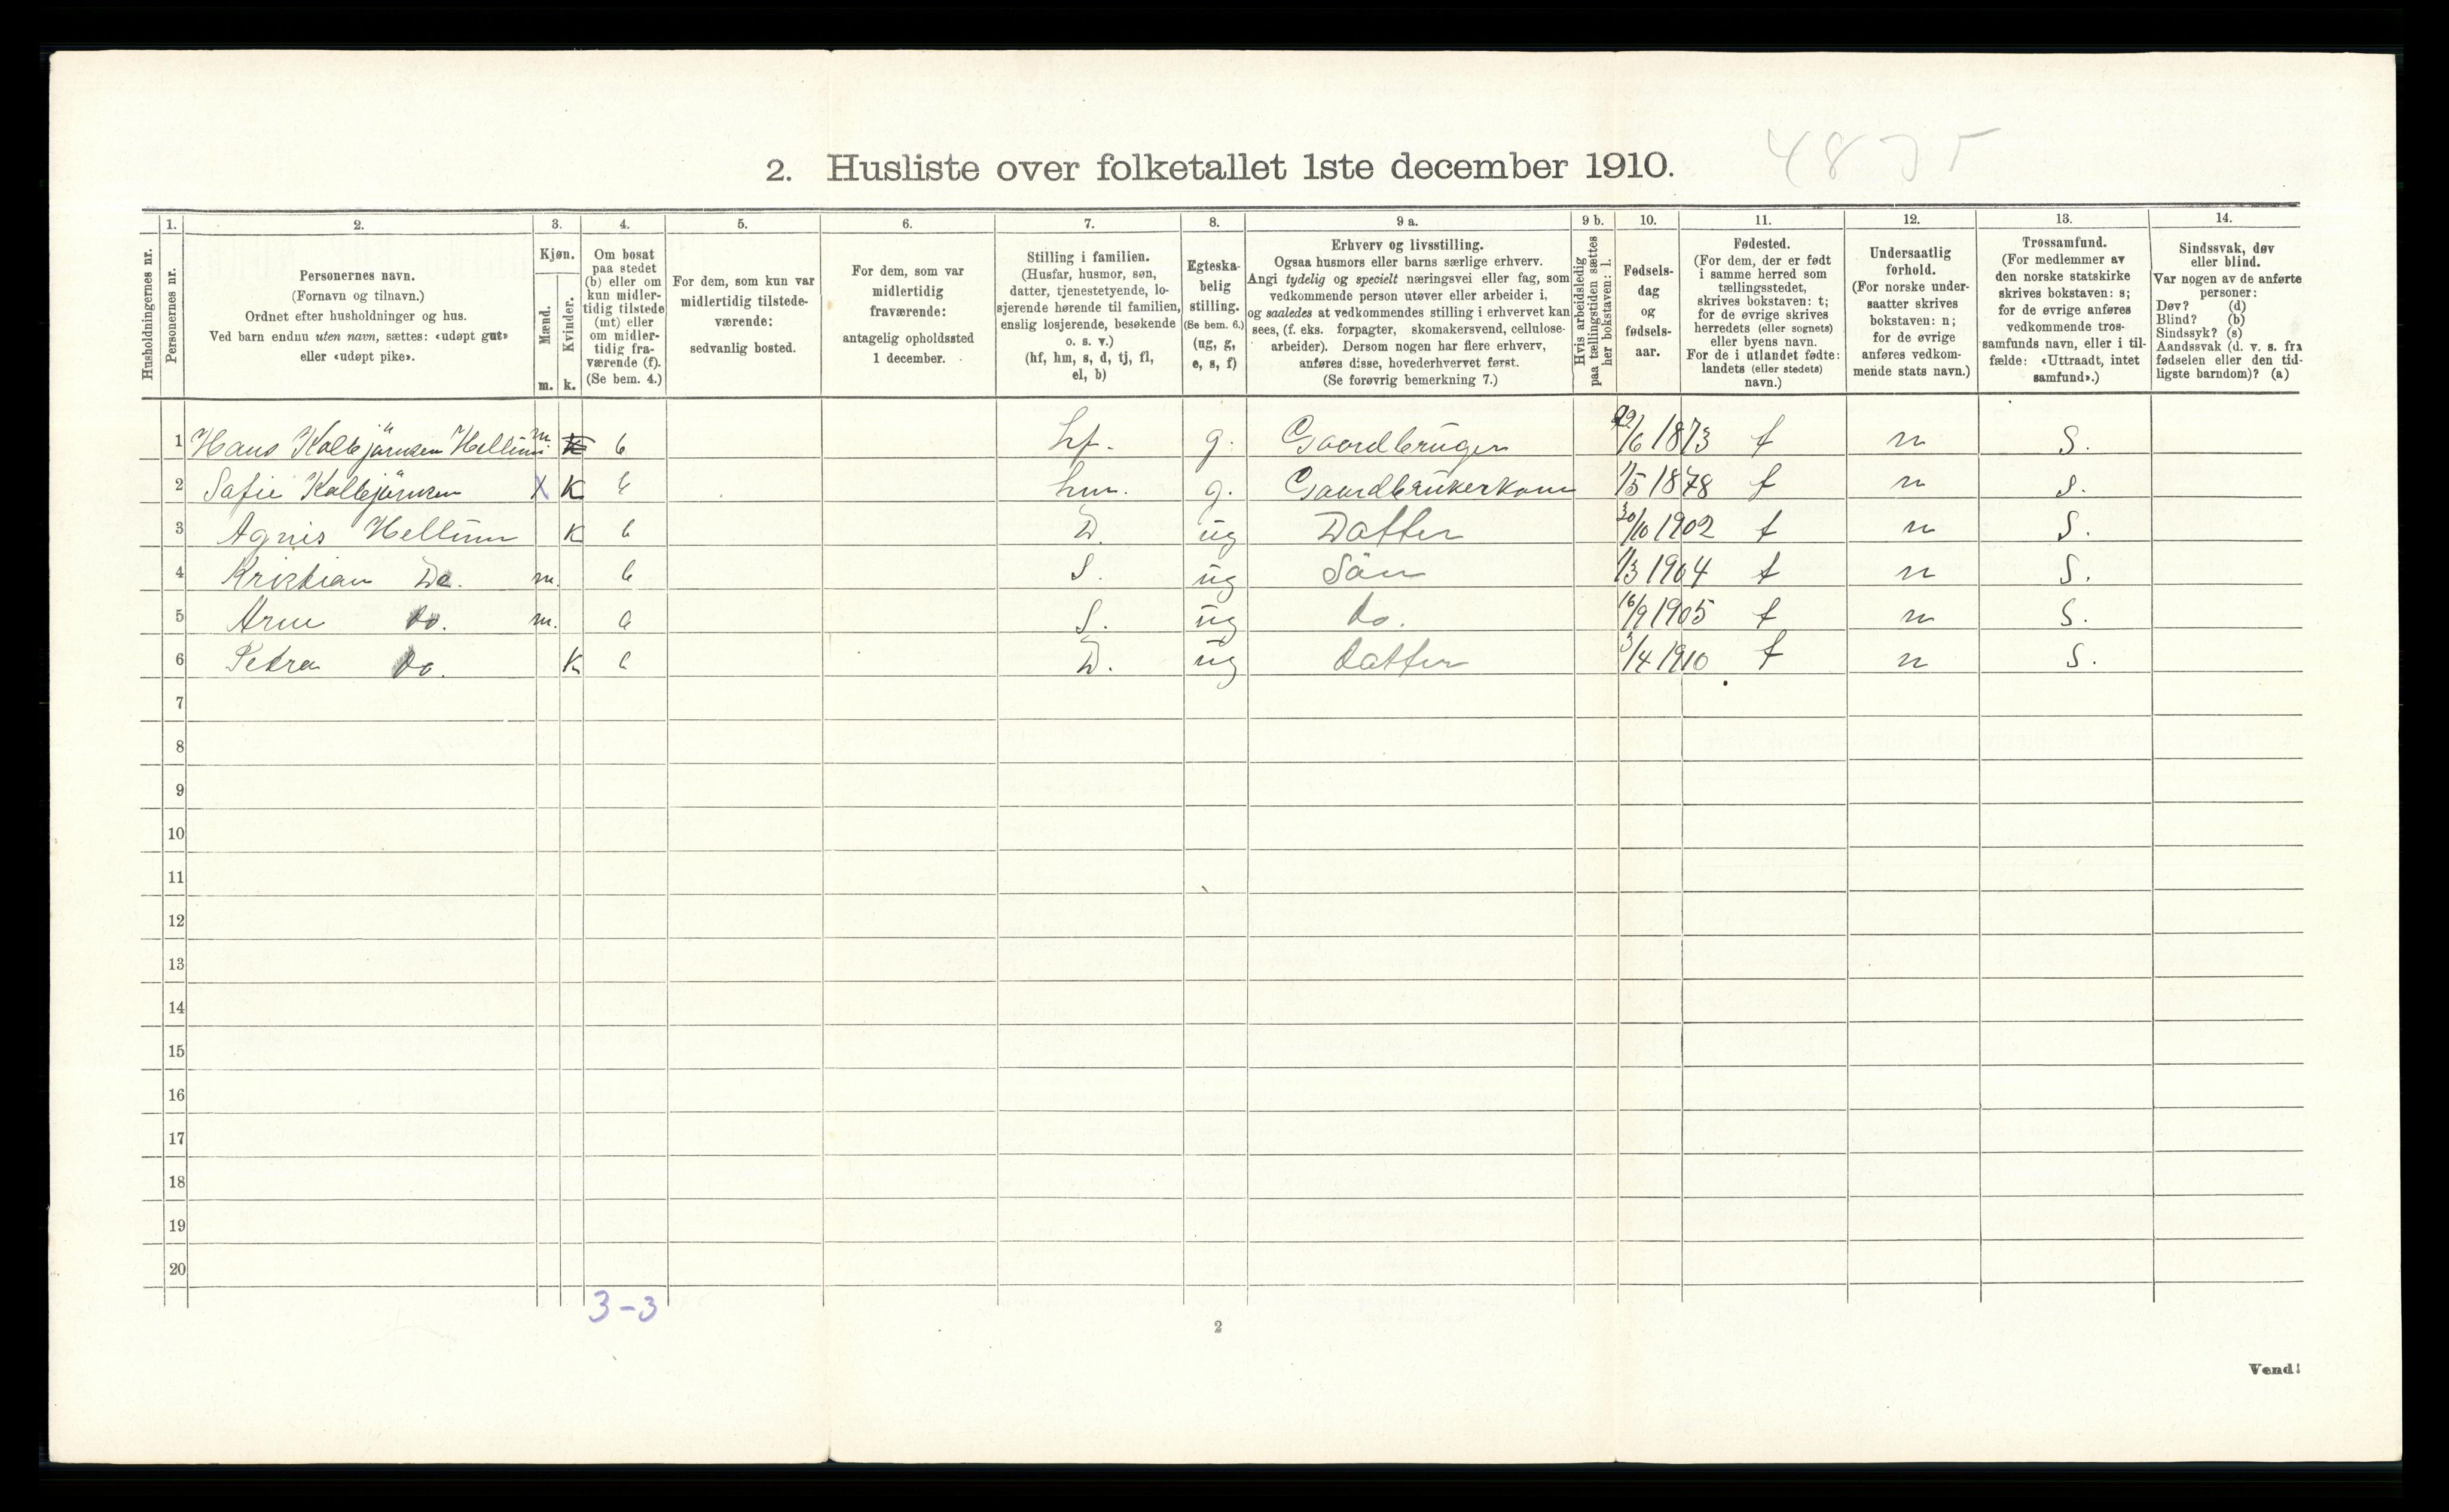 4875
2. Husliste over folketallet 1ste december 1910.
Husholdningernes nr.
1. Personernes nr.
2. Personernes navn.
(Fornavn og tilnavn.)
Ordnet efter husholdninger og hus.
Ved barn endnu uten navn, sættes: «udøpt gut»
eller «udøpt pike».
3. Kjøn.
Mænd. m.
Kvinder. k.
4. Om bosat
paa stedet
(b) eller om
kun midler-
tidig tilstede
(mt) eller
om midler-
tidig fra-
værende (f).
(Se bem. 4.)
5. For dem, som kun var
midlertidig tilstede-
værende:
sedvanlig bosted.
6. For dem, som var
midlertidig
fraværende:
antagelig opholdssted
1 december.
7. Stilling i familien.
(Husfar, husmor, søn,
datter, tjenestetyende, lo-
sjerende hørende til familien,
enslig losjerende, besøkende
o. s. v.)
(hf, hm, s, d, tj, fl,
el, b)
8. Egteska-
belig
stilling.
(Se bem. 6.)
(ug, g,
e, s, f)
9 a. Erhverv og livsstilling.
Ogsaa husmors eller barns særlige erhverv.
Angi tydelig og specielt næringsvei eller fag, som
vedkommende person utøver eller arbeider i,
og saaledes at vedkommendes stilling i erhvervet kan
sees, (f. eks. forpagter, skomakersvend, cellulose-
arbeider). Dersom nogen har flere erhverv,
anføres disse, hovederhvervet først.
(Se forøvrig bemerkning 7.)
9 b. Hvis arbeidsledig
paa tællingstiden sættes
her bokstaven: l.
10. Fødsels-
dag
og
fødsels-
aar.
11. Fødested.
(For dem, der er født
i samme herred som
tællingsstedet,
skrives bokstaven: t;
for de øvrige skrives
herredets (eller sognets)
eller byens navn.
For de i utlandet fødte:
landets (eller stedets)
navn.)
12. Undersaatlig
forhold.
(For norske under-
saatter skrives
bokstaven: n;
for de øvrige
anføres vedkom-
mende stats navn.)
13. Trossamfund.
(For medlemmer av
den norske statskirke
skrives bokstaven: s;
for de øvrige anføres
vedkommende tros-
samfunds navn, eller i til-
fælde: «Uttraadt, intet
samfund».)
14. Sindssvak, døv
eller blind.
Var nogen av de anførte
personer:
Døv? (d)
Blind? (b)
Sindssyk? (s)
Aandssvak (d. v. s. fra
fødselen eller den tid-
ligste barndom)? (a)
1 Hans Kolbjörnsen Hellum m. k b hf. g. Gaardbruger 22/6 1873 t n S.
2 Safie Kolbjörnsen X K b hm. g. Gaardbrukerkone 1/5 1878 t n S.
3 Agnis Hellum K b D. ug Datter 30/10 1902 t n S.
4 Kristian Do. m. b S. ug Sön 1/3 1904 t n S.
5 Arne do. m. b S. ug do. 16/9 1905 t n S.
6 Petra do. K b D. ug datter 3/4 1910 t n S.
7
8
9
10
11
12
13
14
15
16
17
18
19
20
3-3
2
Vend!